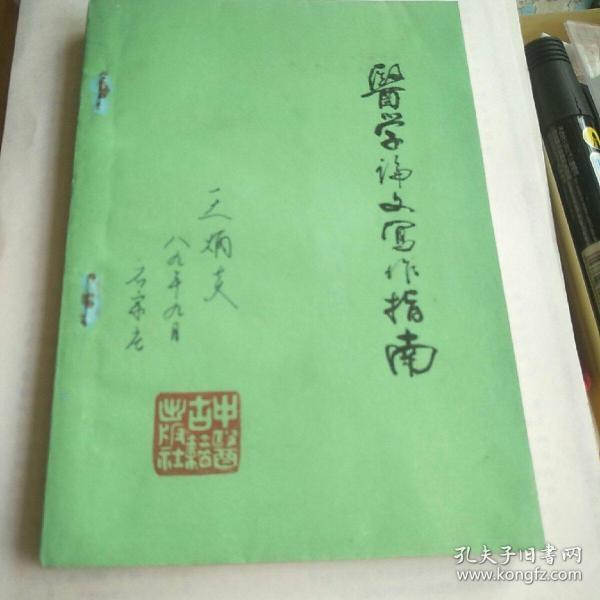 醫学论文写作指南
王炳炎
八九年九月
石家庄
中醫
古籍
出版社
孔夫子旧书网
www.kongfz.com